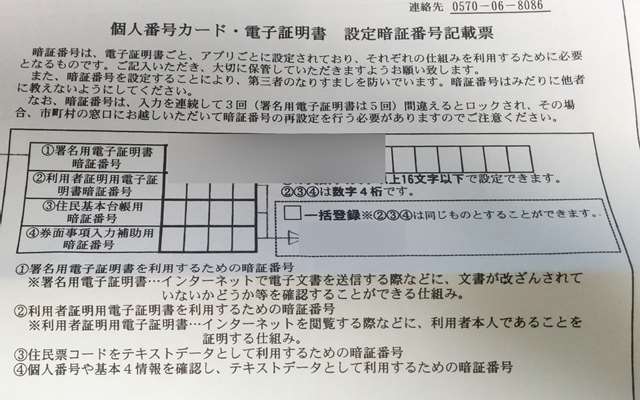 連絡先 0570-06-8086
個人番号カード・電子証明書 設定暗証番号記載票
暗証番号は、電子証明書ごと、アプリごとに設定されており、それぞれの仕組みを利用するために必要
となるものです。ご記入いただき、大切に保管していただきますようお願い致します。
また、暗証番号を設定することにより、第三者のなりすましを防いでいます。暗証番号はみだりに他者
に教えないようにしてください。
なお、暗証番号は、入力を連続して3回（署名用電子証明書は5回）間違えるとロックされ、その場
合、市町村の窓口にお越しいただいて暗証番号の再設定を行う必要がありますのでご注意ください。
①署名用電子証明書
暗証番号
②利用者証明用電子証
明書暗証番号
③住民基本台帳用
暗証番号
④券面事項入力補助用
暗証番号
上16文字以下で設定できます。
②③④は数字4桁です。
□一括登録※②③④は同じものとすることができます。
①署名用電子証明書を利用するための暗証番号
※署名用電子証明書…インターネットで電子文書を送信する際などに、文書が改ざんされて
いないかどうか等を確認することができる仕組み。
②利用者証明用電子証明書を利用するための暗証番号
※利用者証明用電子証明書…インターネットを閲覧する際などに、利用者本人であることを
証明する仕組み。
③住民票コードをテキストデータとして利用するための暗証番号
④個人番号や基本4情報を確認し、テキストデータとして利用するための暗証番号